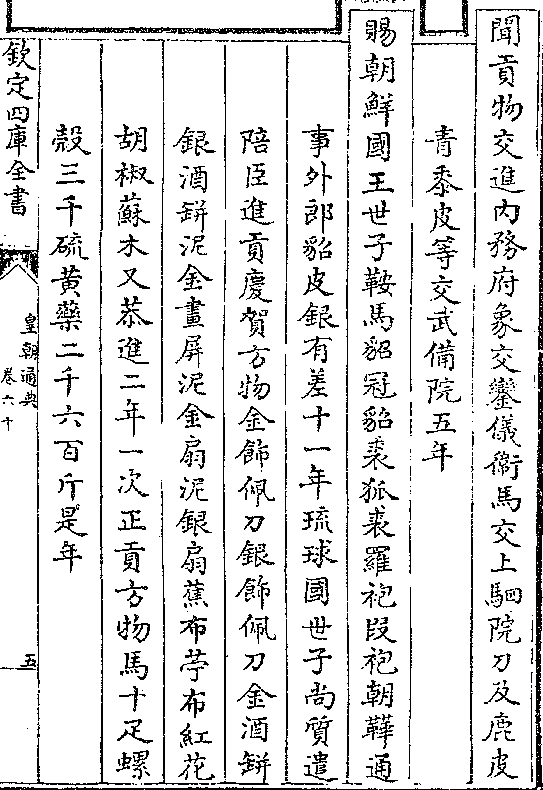 聞貢物交進内務府象交鑾儀衛馬交上駟院刀及鹿皮
青黍皮等交武備院五年
賜朝鮮國王世子鞍馬貂冠貂裘狐裘羅袍段袍朝鞾通
事外郎貂皮銀有差十一年琉球國世子尚質遣
陪臣進貢慶賀方物金飾佩刀銀飾佩刀金酒缾
銀酒缾泥金畫屏泥金扇泥銀扇蕉布苧布紅花
胡椒蘇木又恭進二年一次正貢方物馬十疋螺
殻三千硫黄藥二千六百斤是年
欽定四庫全書
皇朝通典
卷六十
五